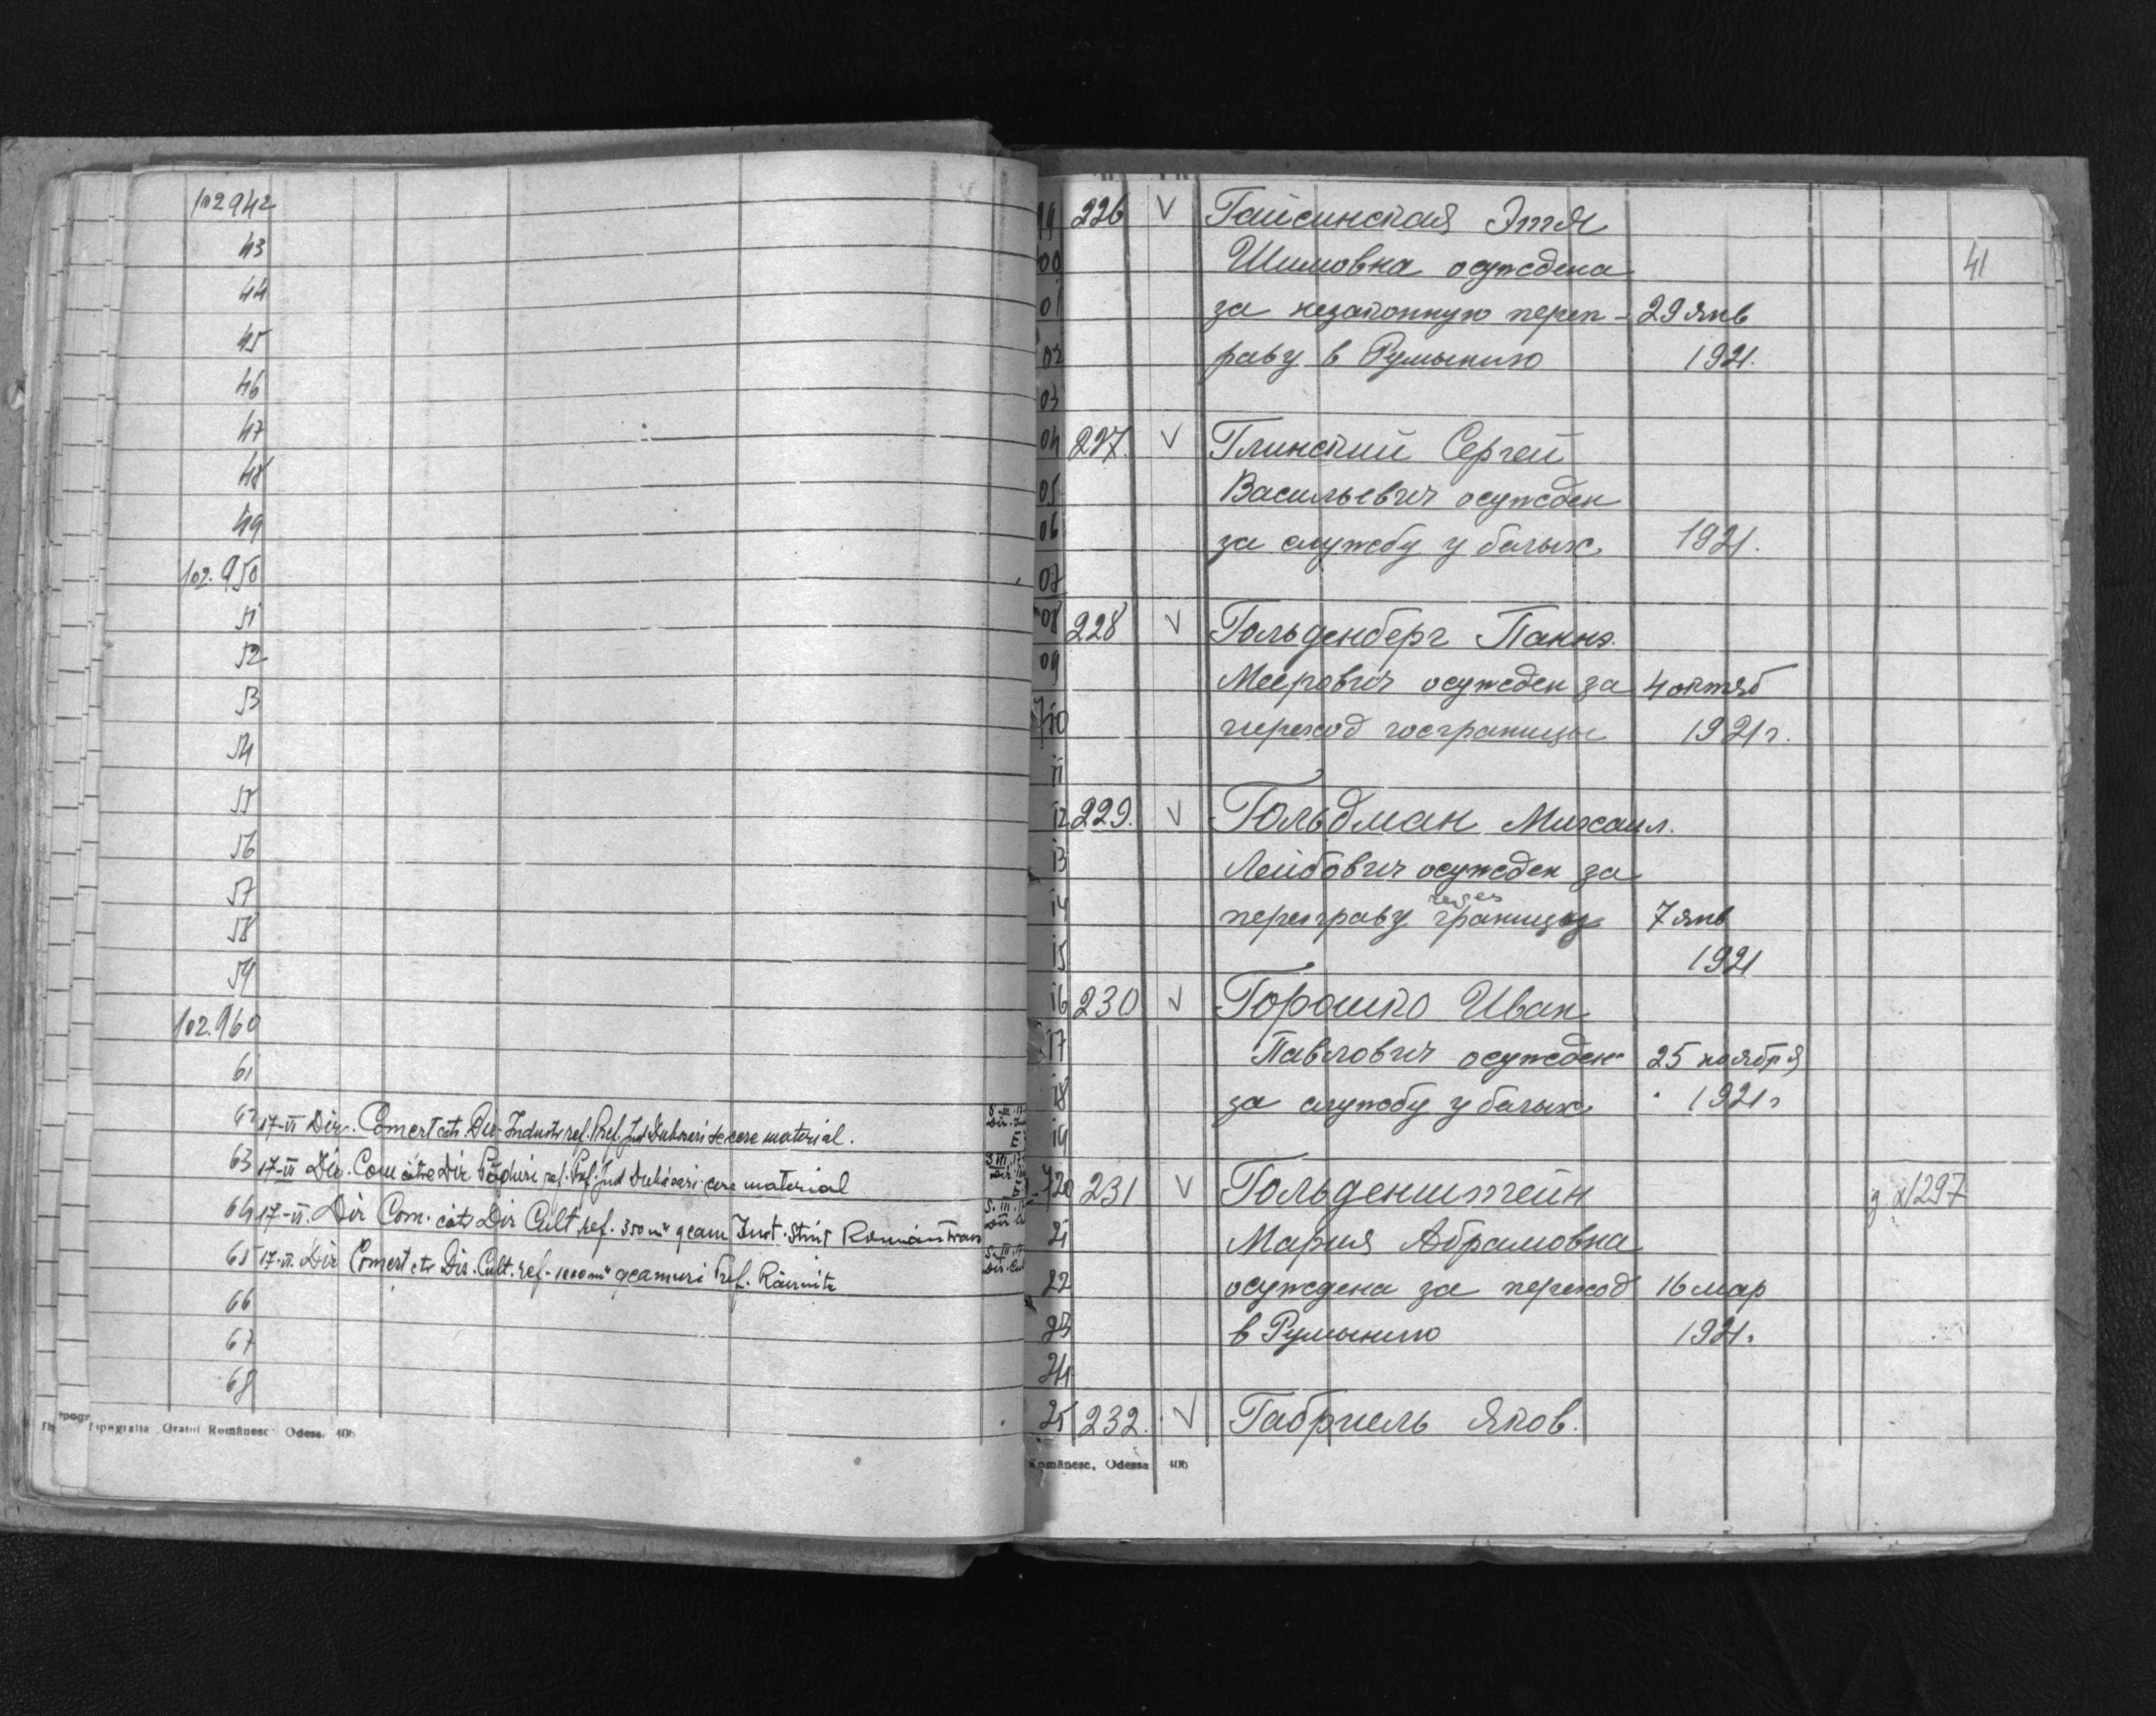 102942
43
44
45
46
47
48
49
102.950
51
52
53
54
55
56
57
58
59
102.960
61
62 17-VI Dir. Comert cats Dir. Industr ref. Pref. Jud Dubasari se cere material.
63 17-VI Dir. Com catre Dir Păduri ref. Pref. Jud Dubăsari cere material
64 17-VI. Dir Com. cats Dir Cult ref. 350 m² geam Inst. Stint Român Trans
65 17-VI. Dir Comert cts Dir. Cult. ref. 1000 m² geamuri Pref. Râbnita
66
67
68
Tipografia Graiul Românesc Odesa 406
41
99 226 V Гайсинская Этя
00 Шимовна осуждена
01 за незаконную переп- 29 янв
02 раву в Румынию 1921.
03
04 227. V Глинский Сергей
05 Васильевич осужден
06 за службу у белых. 1921.
07
08 228 V Гольденберг
09 Меерович осужден за 4 октяб
710 переход госграницы 1921 г.
11
12 229. V Гольдман Михаил.
13 Лейбович осужден за
14 переправу через границу 7 янв
15 1921
16 230 V Горошко Иван
17 Павлович осужден 25 ноября
18 за службу у белых. 1921 г
19
720 231 V Гольденштейн 1297
21 Мария Абрамовна
22 осуждена за переход 16 мар
23 в Румынию 1921.
24
25 232. V Габриель Яков.
Românesc, Odessa 406